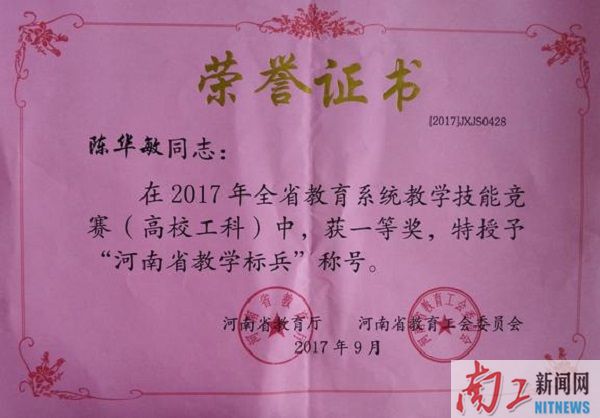 荣誉证书
[2017]JXJS0428
陈华敏同志：
在2017年全省教育系统教学技能竞
赛（高校工科）中，获一等奖，特授予
“河南省教学标兵”称号。
河南省教育厅 河南省教育工会委员会
2017年9月
南工新闻网
NITNEWS